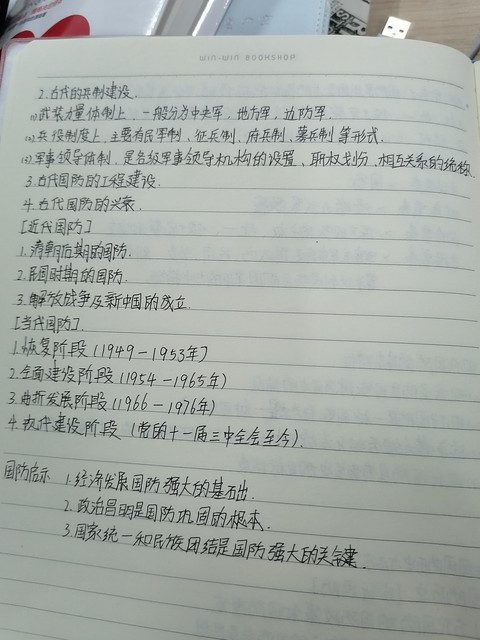 WIN-WIN BOOKSHOP
2.古代的兵制建设.
(1)武装力量体制上,一般分为中央军,地方军,边防军.
(2)兵役制度上,主要有民军制、征兵制、府兵制、募兵制等形式.
(3)军事领导体制,是各级军事领导机构的设置、职权划分、相互关系的统称.
3.古代国防的工程建设.
4.古代国防的兴衰.
[近代国防]
1.清朝后期的国防.
2.民国时期的国防.
3.解放战争及新中国的成立.
[当代国防].
1.恢复阶段(1949-1953年]
2.全面建设阶段(1954-1965年)
3.曲折发展阶段(1966-1976年)
4.现代建设阶段(党的十一届三中全会至今).
国防启示 1.经济发展国防强大的基础出.
2.政治昌明是国防巩固的根本.
3.国家统一和民族团结是国防强大的关键.